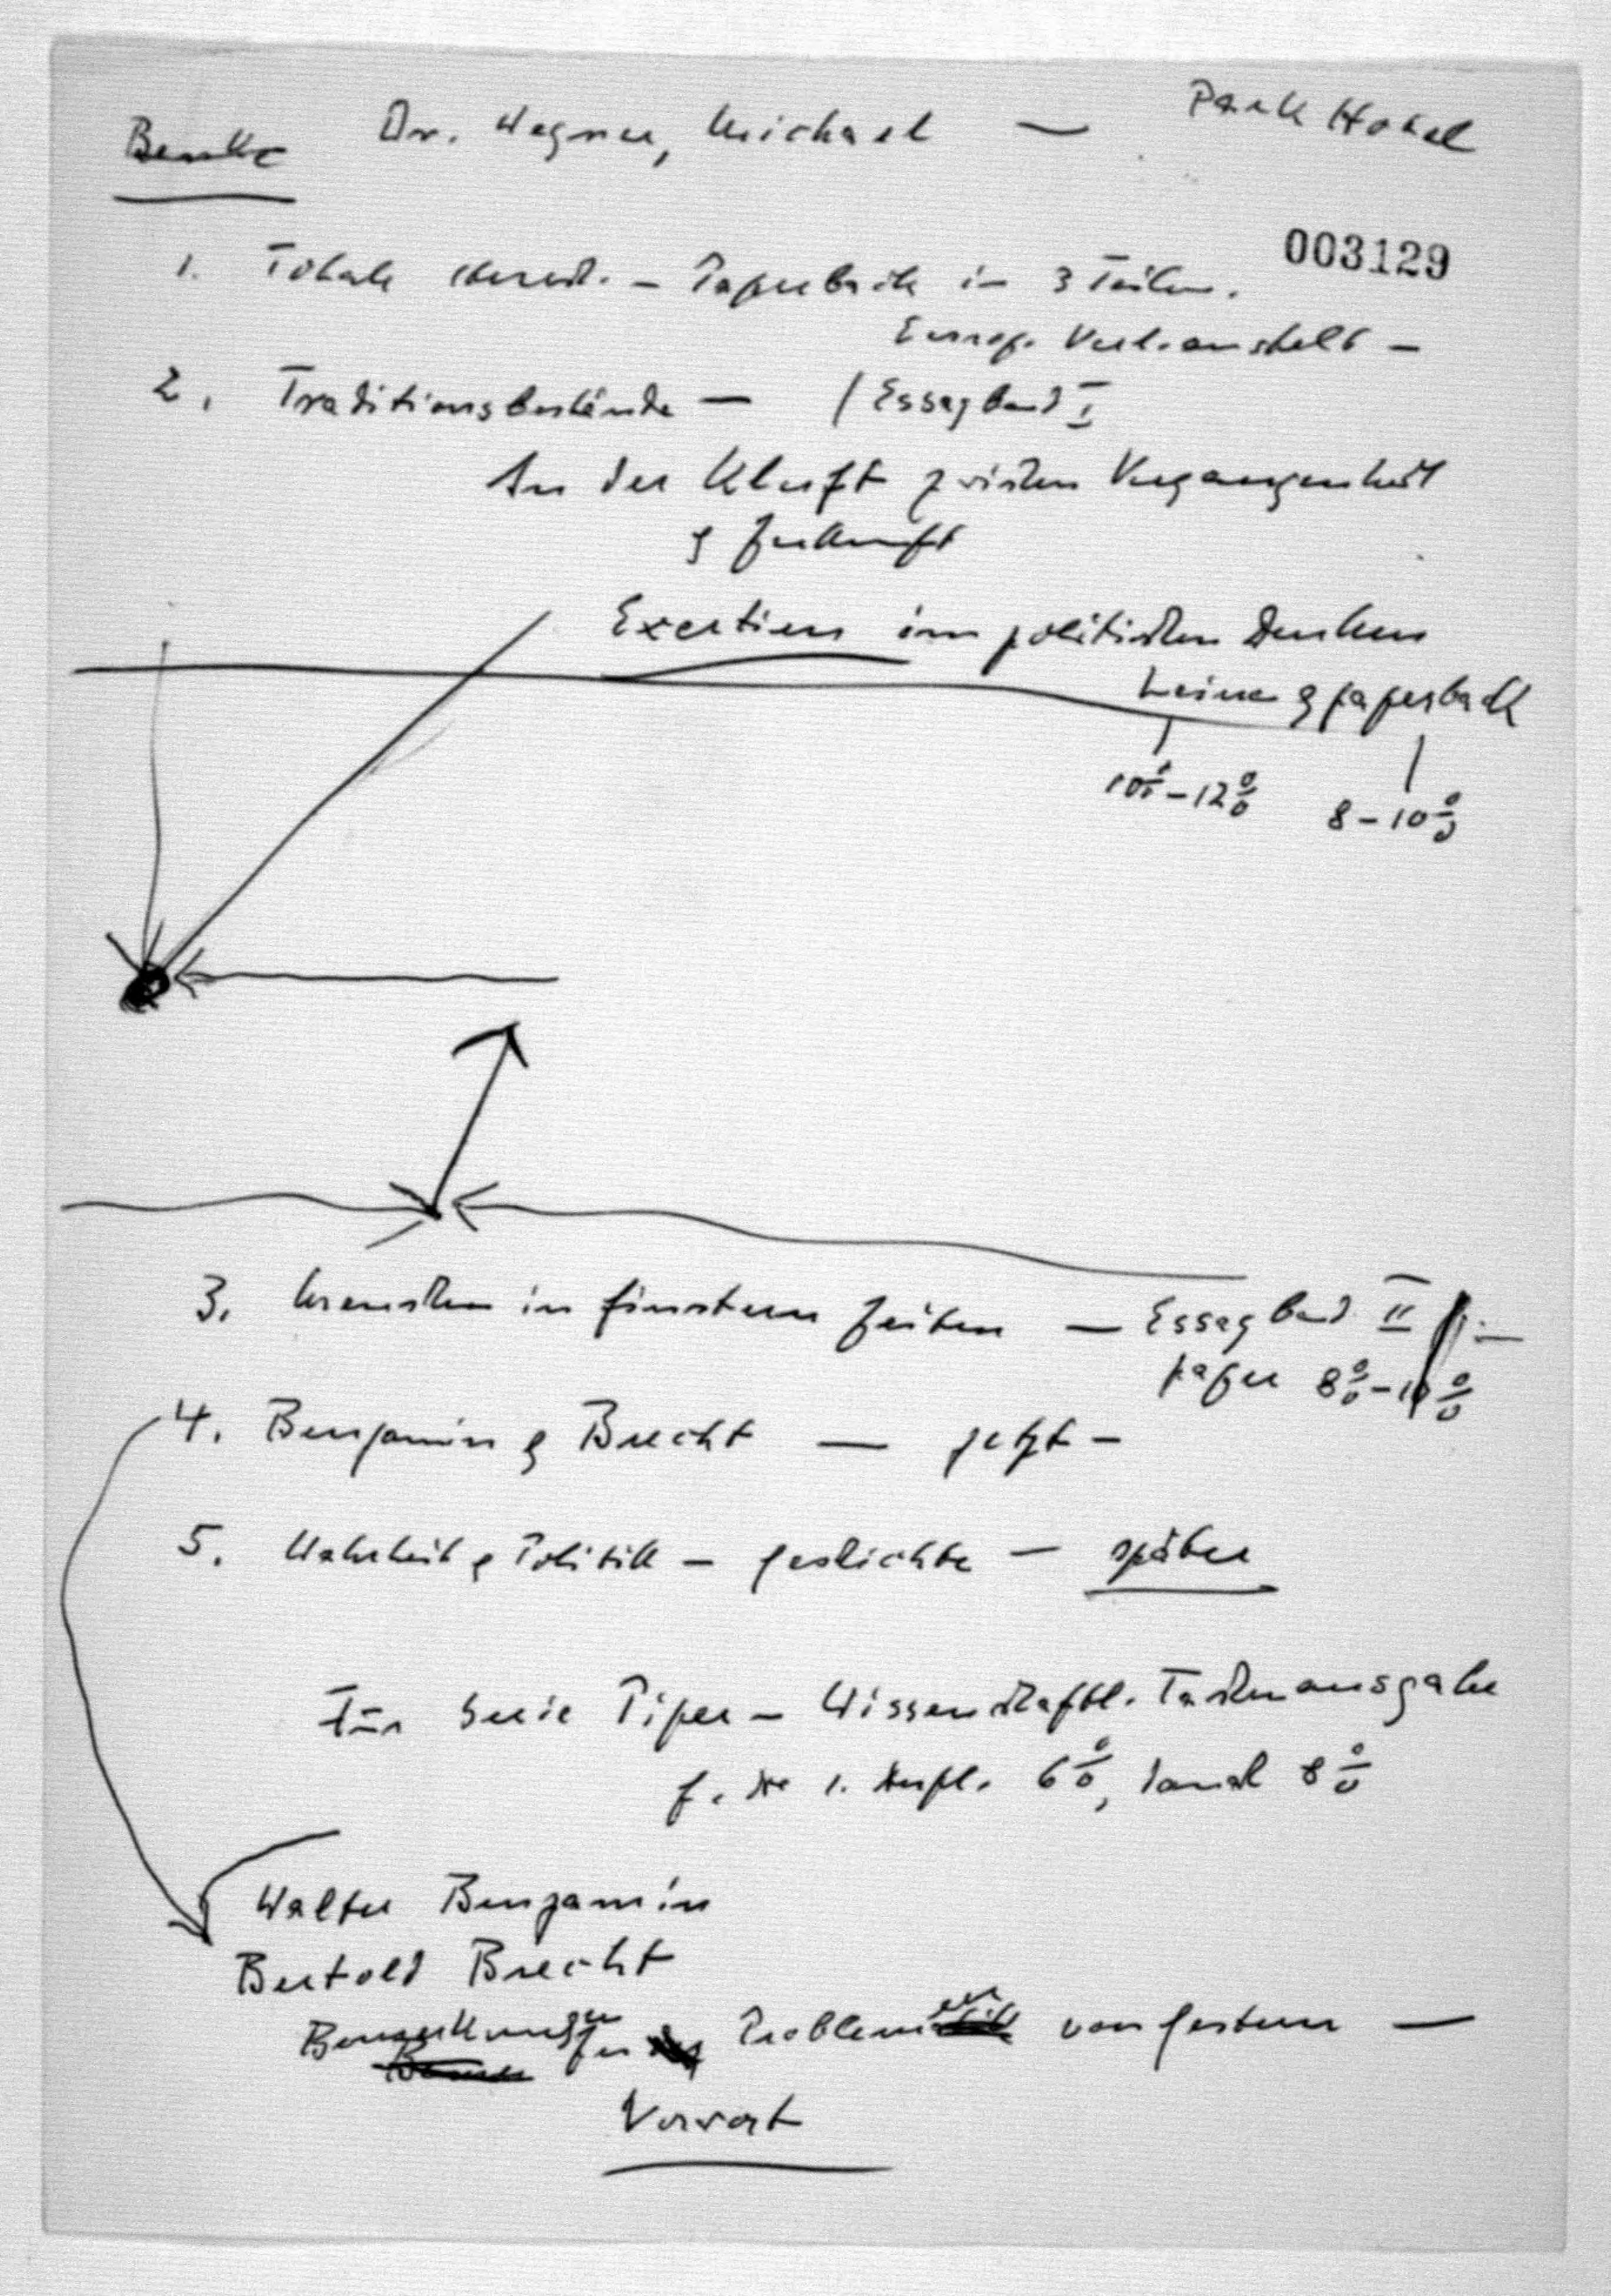 Dr. Wegner, Michael — Park Hotel
003129
1. Totale Herrsch. — Paperback in 3 Teilen.
Europ. Verl.anstalt —
2. Traditionsbestände — (Essayband I
In der Kluft zwischen Vergangenheit
& Zukunft
Exertien im politischen Denken
Leinen & paperback
10% – 12% 8 – 10%
3. Menschen in finstern Zeiten — Essayband II
paper 8% – 10%
4. Benjamin & Brecht — jetzt —
5. Wahrheit & Politik — Geschichte — später
Für Serie Piper — Wissenschaftl. Taschenausgabe
f. die 1. Aufl. 6%, danach 8%
Walter Benjamin
Bertold Brecht
Bemerkungen zu Problemen von gestern —
Vorwort